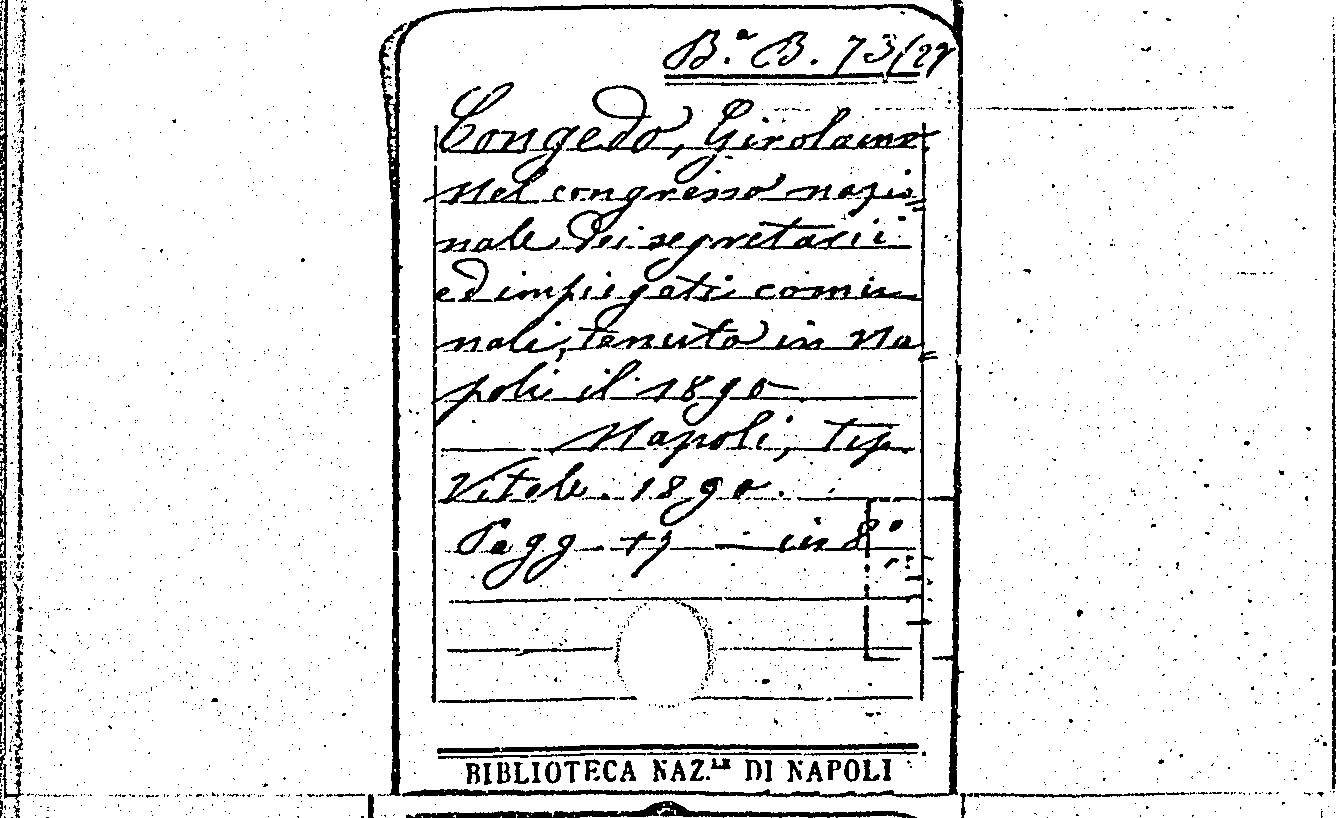 Bᵃ B. 73/27
Congedo, Girolamo.
Nel congresso nazio=
nale dei segretarii
ed impiegati comu
nali, tenuto in Na=
poli il 1890
Napoli, tip.
Vitale. 1890.
Pagg. — in 8°
BIBLIOTECA NAZ.ᴸᴱ DI NAPOLI